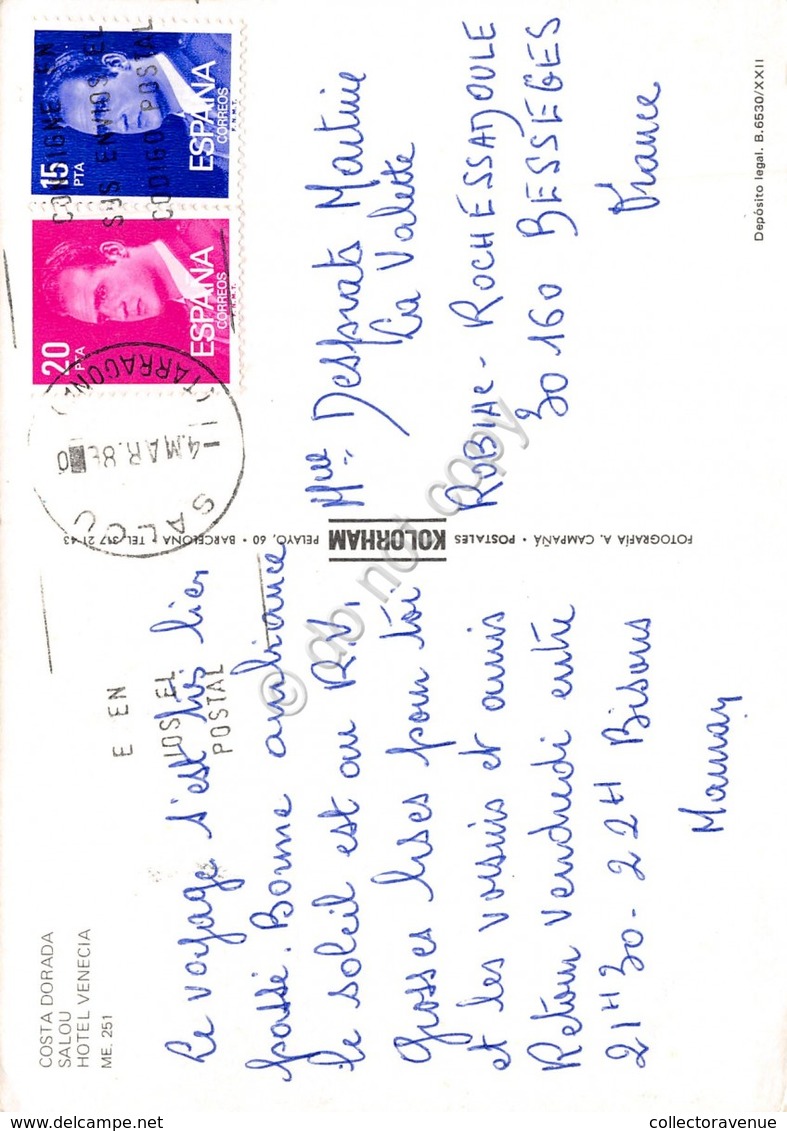 COSTA DORADA
SALOU
HOTEL VENECIA
ME. 251
Le voyage s'est très bien
passé. Bonne ambiance
le soleil est au R.V.
Grosses bises pour toi
et les voisins et amis
Retour vendredi entre
21H30 - 22H Bisous
Maman
E EN
IOS EL
POSTAL
FOTOGRAFÍA A. CAMPAÑÁ • POSTALES KOLORHAM PELAYO, 60 • BARCELONA • TEL. 317 21 43
SALOU
4.MAR.8
(TARRAGONA)
20 PTA
ESPAÑA
CORREOS
F.N.M.T.
15 PTA
ESPAÑA
CORREOS
F.N.M.T.
CONSIGNE EN
SUS ENVIOS EL
CODIGO POSTAL
Mlle Desprats Martine
La Valette
ROBIAC - ROCHESSADOULE
30 160 BESSEGES
France
Depósito legal. B.6530/XXII
© do not copy
collectoravenue